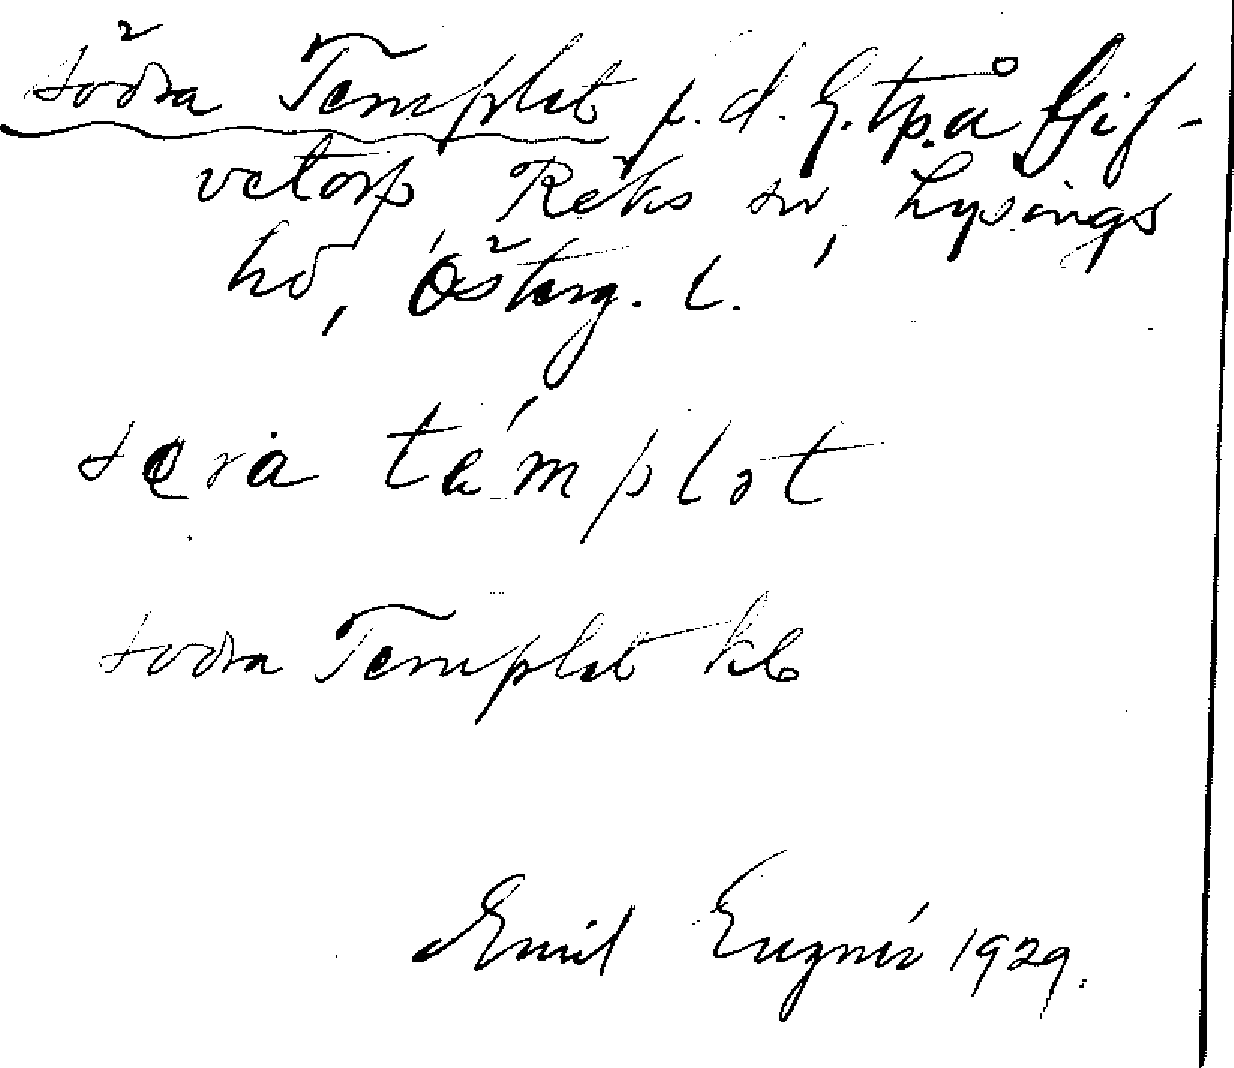 södra Templet p.d. G. tp. å Gif-
vetorp, Röks sn, Lysings
hd, Österg. l.
søra támplət
södra Templet kb
Emil 1929.